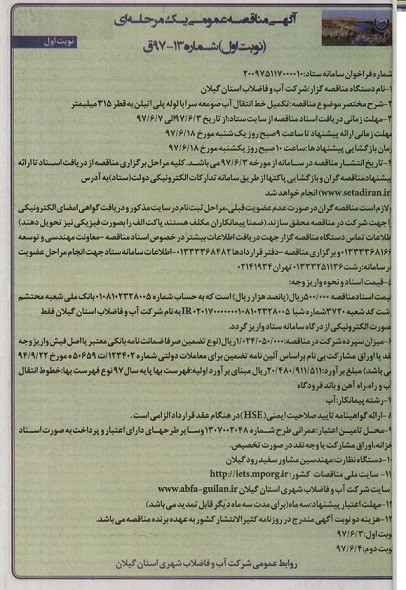 آگهی مناقصه عمومی یک مرحله‌ای
(نوبت اول) شماره ۱۳-۹۷ق
نوبت اول
شماره فراخوان سامانه ستاد: ۲۰۰۹۷۵۱۱۷۰۰۰۰۱۰
۱-نام دستگاه مناقصه گزار: شرکت آب و فاضلاب استان گیلان
۲-شرح مختصر موضوع مناقصه: تکمیل خط انتقال آب صومعه سرا با لوله پلی اتیلن به قطر ۳۱۵ میلیمتر
۳-مهلت زمانی دریافت اسناد مناقصه از سایت ستاد: از تاریخ ۹۷/۶/۳ الی ۹۷/۶/۷
مهلت زمانی ارائه پیشنهاد تا ساعت ۹ صبح روز یک شنبه مورخ ۹۷/۶/۱۸
زمان بازگشایی پیشنهادها: ساعت ۱۰ صبح روز یکشنبه مورخ ۹۷/۶/۱۸
۴-تاریخ انتشار مناقصه در سامانه از مورخه ۹۷/۶/۳ می باشد. کلیه مراحل برگزاری مناقصه از دریافت اسناد تا ارائه
پیشنهاد مناقصه گران و بازگشایی پاکتها از طریق سامانه تدارکات الکترونیکی دولت (ستاد) به آدرس
www.setadiran.ir) انجام خواهد شد
ولازم است مناقصه گران در صورت عدم عضویت قبلی، مراحل ثبت نام در سایت مذکور و دریافت گواهی امضای الکترونیکی
را جهت شرکت در مناقصه محقق سازند. (ضمنا پیمانکاران مکلف هستند پاکت الف را بصورت فیزیکی نیز تحویل دهند)
طلاعات تماس دستگاه مناقصه گزار جهت دریافت اطلاعات بیشتر در خصوص اسناد مناقصه -معاونت مهندسی و توسعه
و برگزاری مناقصه -دفتر قراردادها ۰۱۳۳۳۳۶۸۴۸۲ -اطلاعات سامانه ستاد جهت انجام مراحل عضویت
در سامانه: رشت ۰۱۳۳۳۲۵۱۱۳۶ تهران ۰۲۱۴۱۹۳۴
۵-قیمت اسناد و نحوه واریز وجه:
قیمت اسناد مناقصه ۵۰۰/۰۰۰ ریال (پانصد هزار ریال) است که به حساب شماره ۰۱۰۸۱۰۲۳۲۸۰۰۵ بانک ملی شعبه محتشم
رشت کد شعبه ۳۷۲۰ شماره شبا به نام شرکت آب و فاضلاب استان گیلان فقط
صورت الکترونیکی از درگاه سامانه ستاد واریز گردد.
۶-میزان سپرده شرکت در مناقصه: ۱/۰۲۴/۰۵۰/۰۰۰ ریال (نوع تضمین صرفا ضمانت نامه بانکی معتبر یا اصل فیش واریز وجه
نقد یا اوراق مشارکت بی نام براساس آئین نامه تضمین برای معاملات دولتی شماره ۱۲۳۴۰۲/ت ۵۰۶۵۹ ه مورخ ۹۴/۹/۲۲
می باشد) مبلغ برآورد: ۲۰/۴۸۰/۹۱۱/۵۱۱ ریال مبنای برآورد اولیه: فهرست بها پایه سال ۹۷ نوع فهرست بها: خطوط انتقال
آب و راه، راه آهن و باند فرودگاه
۷-رشته پیمانکار: آب
۸-ارائه گواهینامه تایید صلاحیت ایمنی (HSE) در هنگام عقد قرارداد الزامی است.
۹-محل تامین اعتبار: عمرانی طرح شماره ۱۳۰۷۰۰۳۰۴۸ وسایر طرحهای دارای اعتبار و پرداخت به صورت اسناد
خزانه، اوراق مشارکت یا وجه نقد در صورت تخصیص.
۱۰-دستگاه نظارت: مهندسین مشاور سفیدرود گیلان
۱۱- سایت ملی مناقصات کشور: http://iets.mporg.ir
سایت شرکت آب و فاضلاب شهری استان گیلان www.abfa-guilan.ir
۱۲-مهلت اعتبار پیشنهاد: سه ماه (برای مدت سه ماه دیگر قابل تمدید می باشد)
۱۳-هزینه دو نوبت آگهی مندرج در روزنامه کثیر الانتشار کشور به عهده برنده مناقصه می باشد.
نوبت اول: ۹۷/۶/۳
نوبت دوم: ۹۷/۶/۴
روابط عمومی شرکت آب و فاضلاب شهری استان گیلان